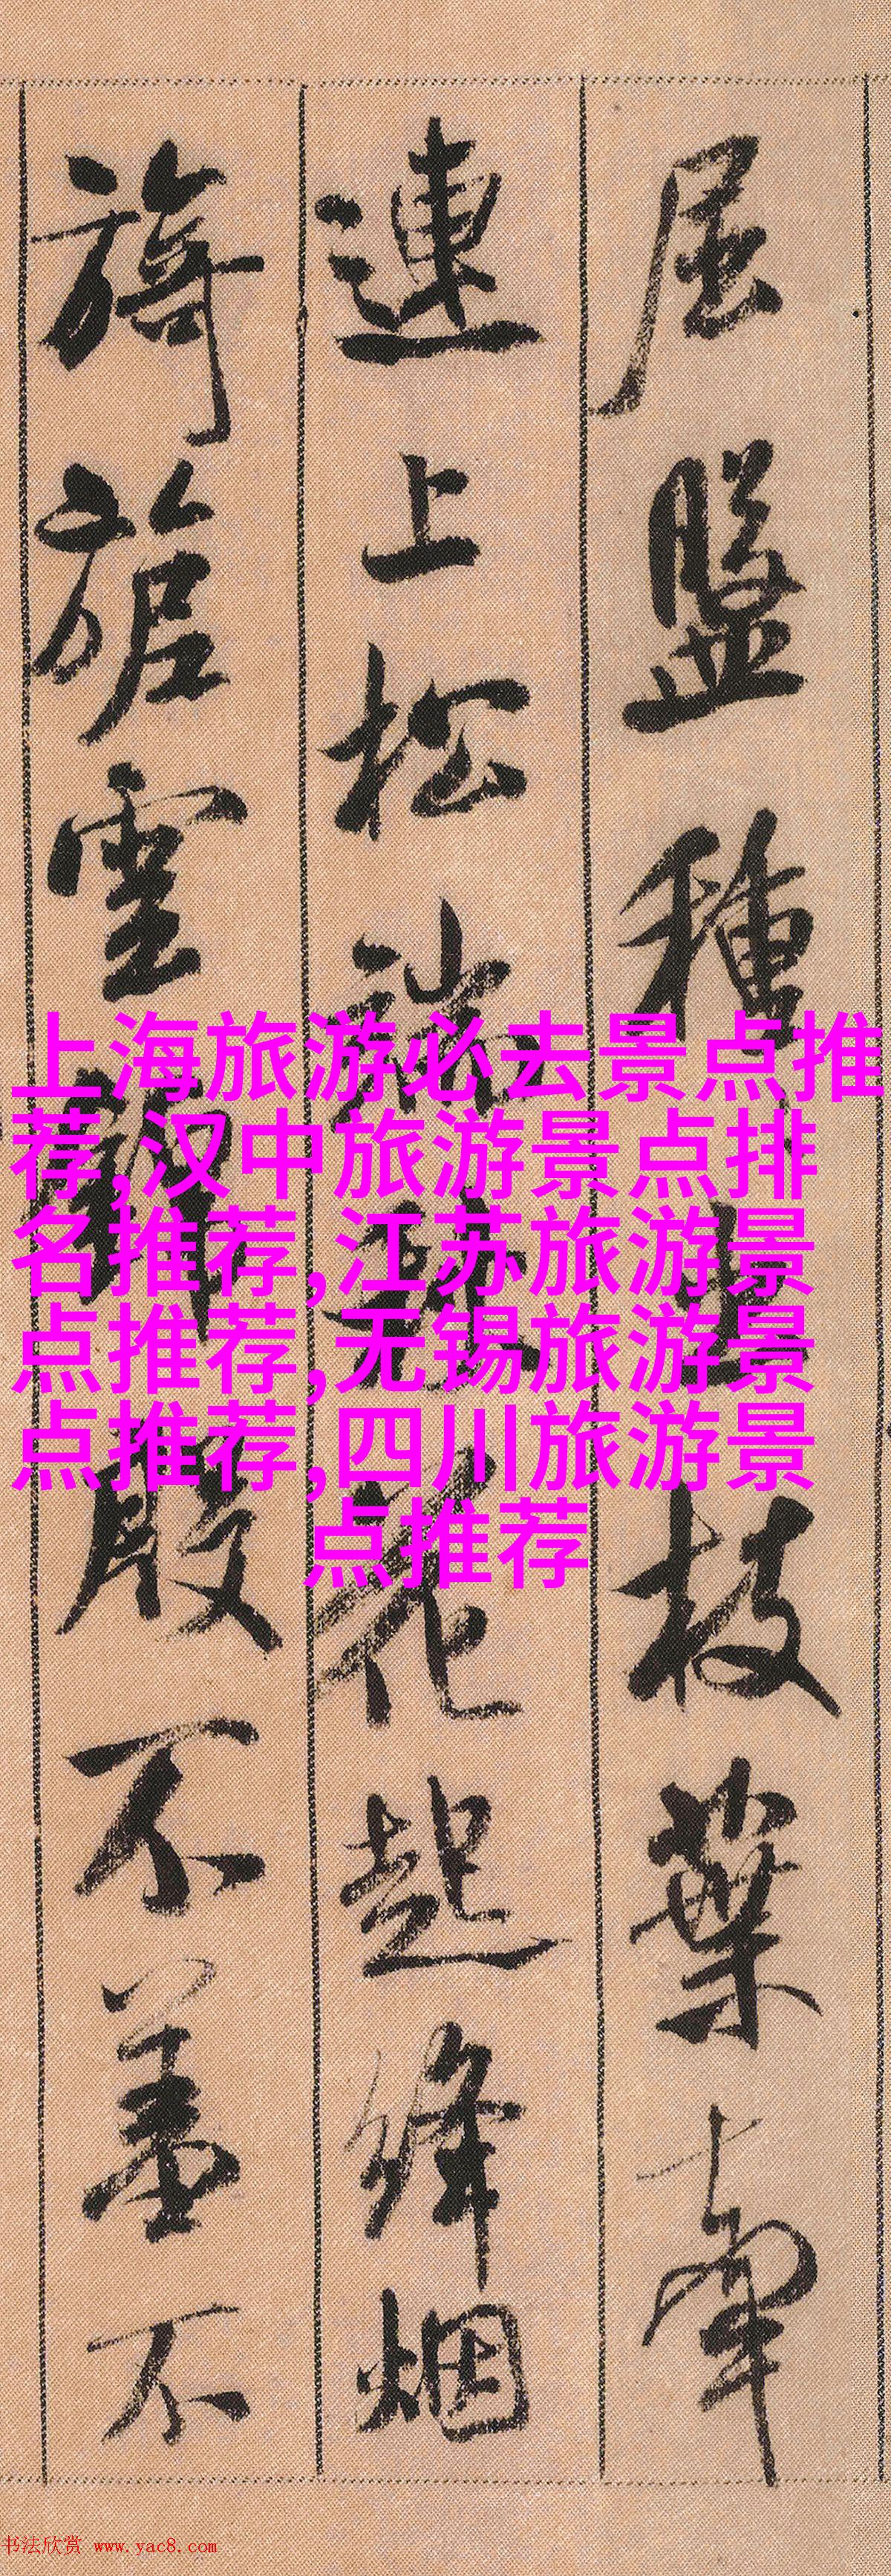 屈盤種
枝葉牵
連上松
花起絳烟
旖旎雲
殿不羞不
上海旅游必去景点推
荐,汉中旅游景点排
名推荐,江苏旅游景
点推荐,无锡旅游景
点推荐,四川旅游景
点推荐
书法欣赏 www.yac8.com